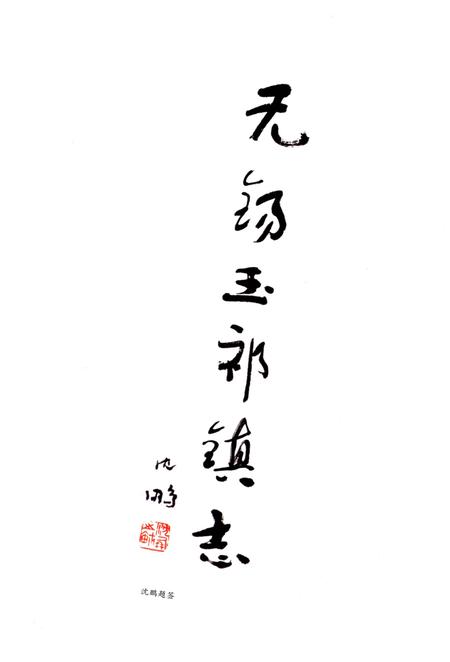 无锡玉祁镇志
沈鹏
沈鹏题签